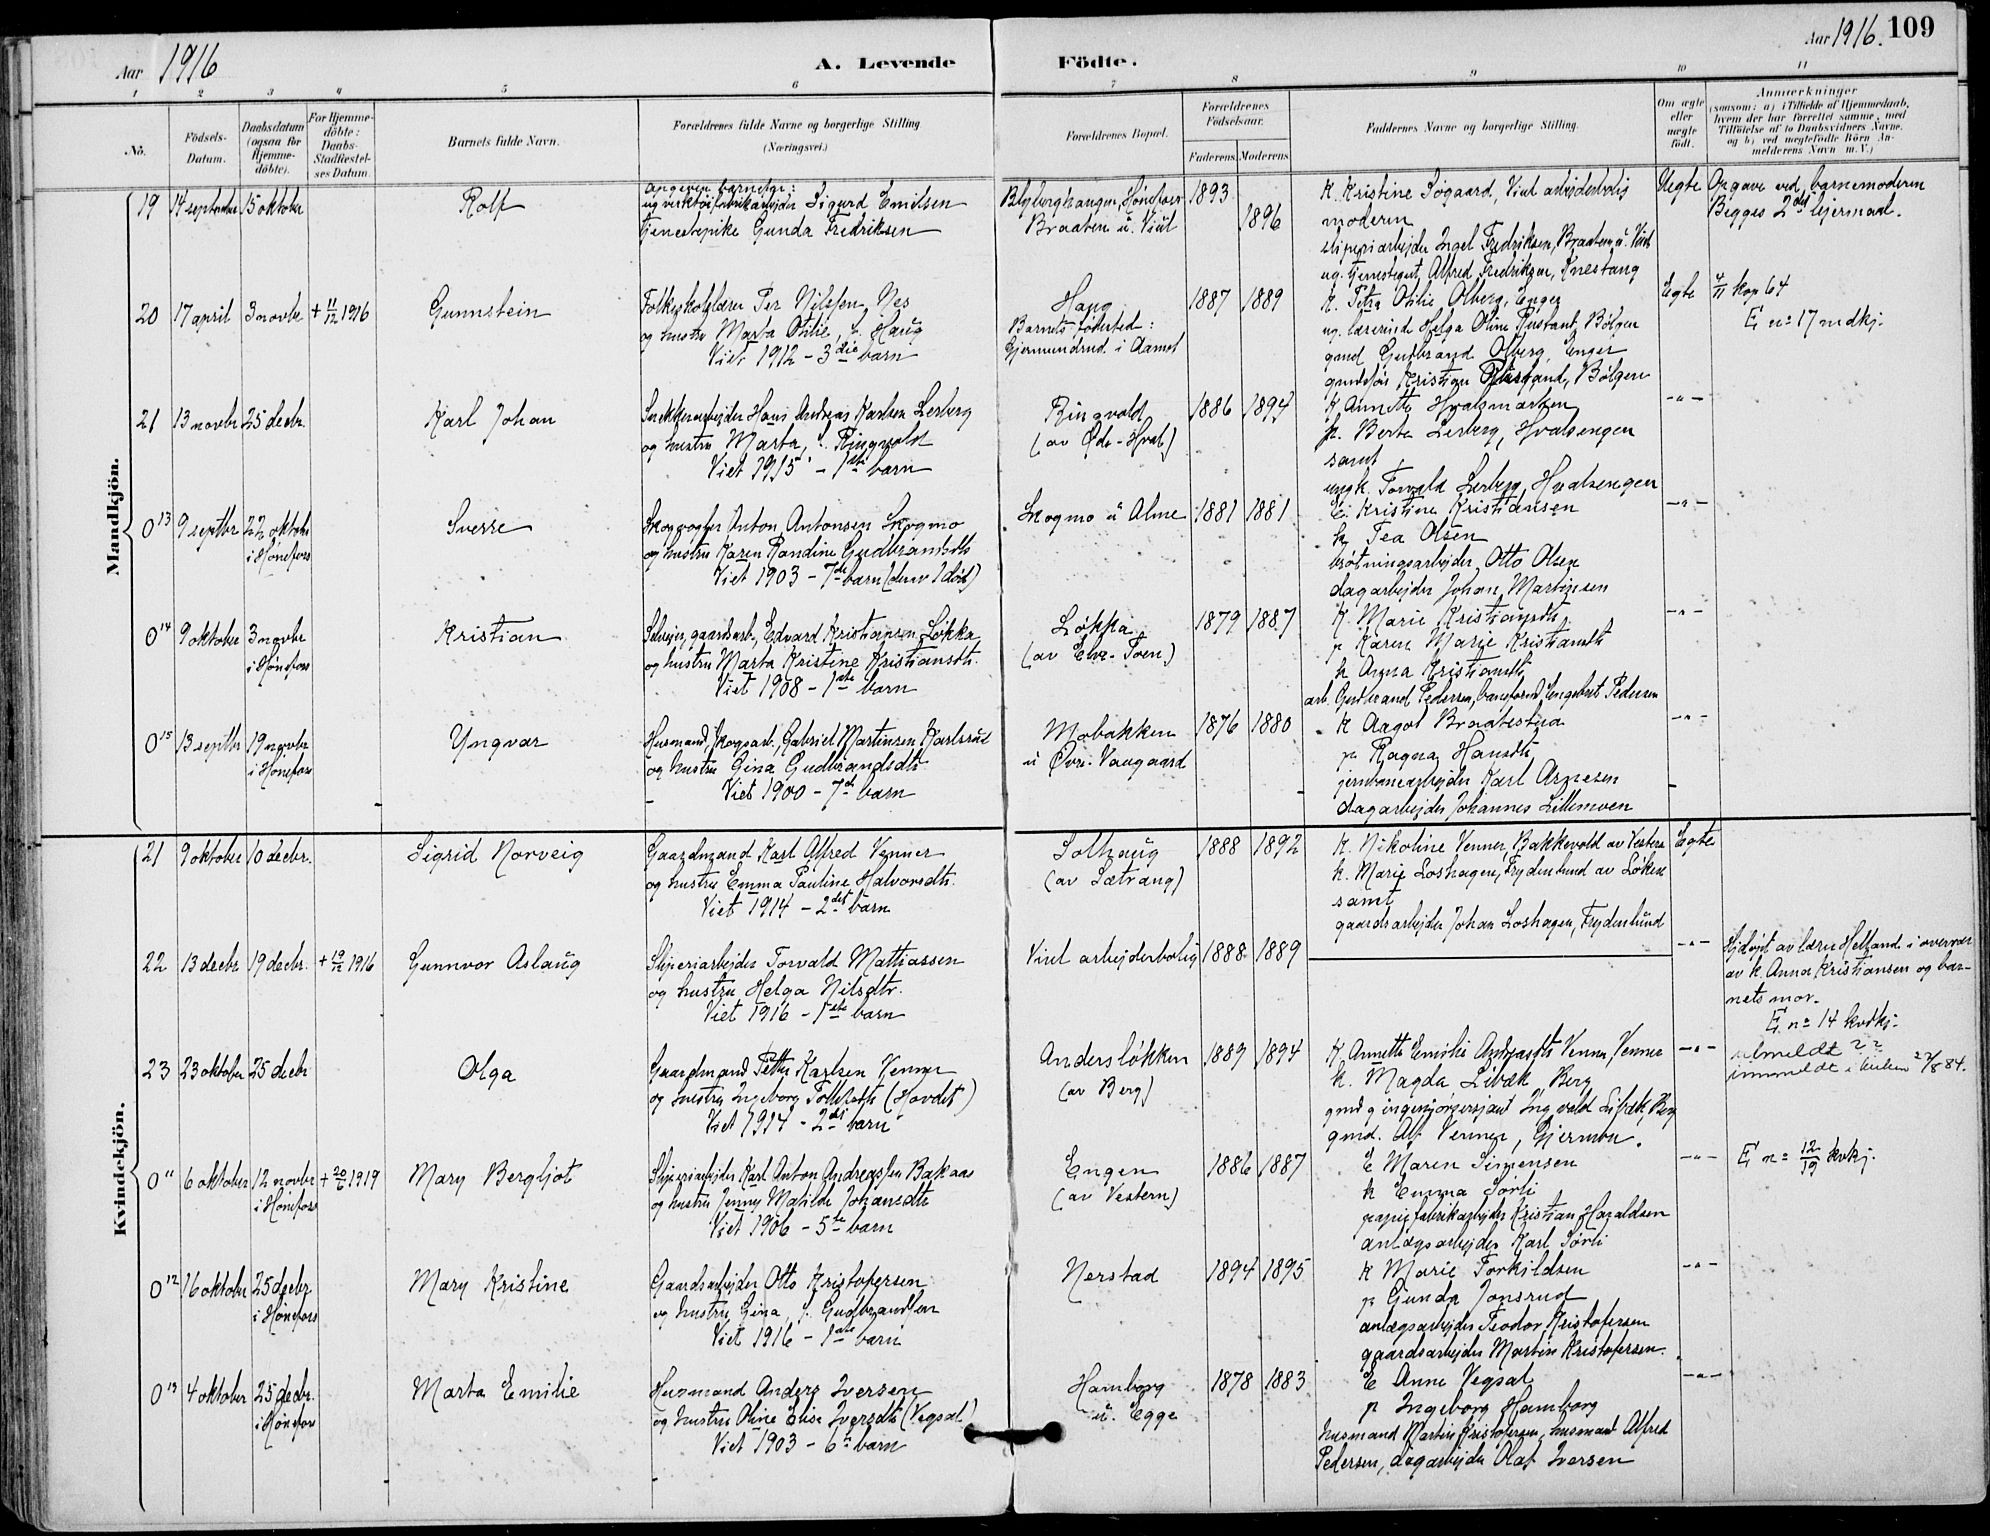 Aar 1916
A. Levende
Födte.
Aar 1916. 109
1 2 3 4 5 6 7 8 9 10 11
No.
Födsels-Datum.
Daabsdatum (ogsaa for Hjemme-döbte).
For Hjemme-döbte: Daabs-Stadfæstel-ses Datum.
Barnets fulde Navn.
Forældrenes fulde Navne og borgerlige Stilling
(Næringsvei.)
Forældrenes Bopæl.
Forældrenes Födselsaar.
Faderens. Moderens.
Faddernes Navne og borgerlige Stilling.
Om ægte eller uægte födt.
Anmærkninger
(saasom: a) i Tilfælde af Hjemmedaab,
hvem der har forrettet samme, med
Tilföielse af to Daabsvidners Navne,
og b) ved uægtefödte Börn An-
melderens Navn m. V.)
Mandkjön.
19 14 septbr 15 oktober Rolf
angiven barnefar:
Sigurd Emilsen
tjenestepike Gunda Fredriksen
Hønefoss
Braaten u. Viul
1893
1896
K. Kristine Søgaard, Viul arbejderbolig
moderen
sliperiarbejder Ingel Fredriksen, Braaten u. Viul
Alfred Fredriksen, Knestang
Uegte
Opgave ved barnemoderen
Begges 2det lejermaal.
20 17 april 3 novbr + 11/12 1916 Gunnstein
Folkeskolelærer Per Nilssen Nes
og hustru Marta Otilie, f. Haug
Viet 1912 - 3die barn
Haug
Barnets fødested:
Gjermundrud i Aamot
1887 1889
K. Petra Otilie Olberg, Enger
ug. lærerinde Helga Oline Rustand, Bølgen
gmd Gudbrand Olberg, Enger
Bølgen
Egte
4/11 kop 64
E no 17 mdkj.
21 13 novbr 25 decbr. Karl Johan
Snekkerarbejder Hans Andreas Karlsen Lerberg
og hustru Marta, f. Ringvold
Viet 1915 - 1ste barn
Ringvold
(av Øde-Hval)
1886 1894
K Annette Hvalsmarken
p. Berta Lerberg, Hvalsengen
samt
ungk. Torvald Lerberg, Hvalsengen
-"-
0 13 9 septbr 22 oktobr i Hønefoss Sverre
Skogvogter Anton Antonsen Skogmo
og hustru Karen Randine Gudbrandsdtr
Viet 1903 - 7de barn (derav 1 død)
Skogmo u Alme 1881 1881
E. Kristine Kristiansen
k Tea Olsen
fløtningsarbejder Otto Olsen
dagarbejder Johan Martinsen
-"-
0 14 9 oktober 3 novbr i Hønefoss Kristian
Selvejer, gaardsarb., Edvard Kristiansen Løkka
og hustru Marta Kristine Kristiansdtr.
Viet 1908 - 1ste barn
Løkka
1879 1887
K. Marie Kristiansdtr
p Karen Marie Kristiansdtr
k Anna Kristiansdtr
arb. Gudbrand Pedersen, Engebret Pedersen
-"-
0 15 13 septbr 19 novbr i Hønefoss Yngvar
Husmand, skogsarb., Gabriel Martinsen Karlsrud
og hustru Gina Gudbrandsdtr
Viet 1900 - 7de barn
Mobakken
u Øvre Vaagaard
1876 1880
K Aagot Braatestua
p Ragna Hansdtr
jernbanearbejder Karl Arnesen
dagarbejder Johannes Lillemoen
-"-
Kvindekjön.
21 9 oktober 10 decbr. Sigrid Norveig
Gaardmand Karl Alfred Venner
og hustru Emma Pauline Halvorsdtr.
Viet 1914 - 2det barn
Solhaug
(av Sætrang)
1888 1892
K. Nikoline Venner, Bakkevold av Vestern
k. Marie Loshagen, Frydenlund av Løken
samt
gaardsarbejder Johan Loshagen, Frydenlund
Egte
22 13 decbr 19 decbr. + 19/12 1916 Gunnvor Aslaug
Sliperiarbejder Torvald Mathiassen
og hustru Helga Nilsdtr.
Viet 1916 - 1ste barn
Viul arbejderbolig 1888 1889
-"-
Hjdøpt av lærer Helland i overvær
av k. Anna Kristiansen og bar-
nets mor.
E. no 14 kvdkj.
23 23 oktober 25 decbr Olga
Gaardmand Petter Karlsen Venner
og hustru Ingeborg Tollefsdtr (Hovdet)
Viet 1914 - 2det barn
Andersløkken
(av Berg)
1889 1894
K Annette Emilie Andreasdtr Venner, Venner
k. Magda Libæk, Berg
gmd og ingeniørsersjant Ingvald Libæk, Berg
gmd. Alf Venner, Gjermon.
-"-
utmeldt ??
innmeldt i kirken 22/8 84.
0 11 6 oktober 12 novbr i Hønefoss + 20/6 1919 Mary Bergljot
Sliperiarbejder Karl Anton Andreassen Bakaas
og hustru Jenny Matilde Johansdtr
Viet 1906 - 5te barn
Engen
(av Vestern)
1886 1887
E Maren Simensen
k Emma Sørli
papirfabrikarbejder Kristian Haraldsen
anlægsarbejder Karl Sørli
-"-
E no 12/19 kvkj.
0 12 16 oktober 25 decbr i Hønefoss Mary Kristine
Gaardsarbejder Otto Kristofersen
og hustru Gina, f. Gudbrandsen
Viet 1916 - 1ste barn
Nerstad
1894 1895
K Marie Torkildsen
p Gunda Jonsrud
anlægsarbejder Teodor Kristofersen
gaardsarbejder Martin Kristofersen.
-"-
0 13 4 oktober 25 decbr. i Hønefoss Marta Emilie
Husmand Anders Iversen
og hustru Oline Elise Iversdtr (Vegsal)
Viet 1903 - 6te barn
Hamborg
u. Egge
1878 1883
E Anne Vegsal
p Ingeborg Hamborg
husmand Martin Kristofersen, husmand Alfred
Pedersen, dagarbejder Olaf Iversen
-"-